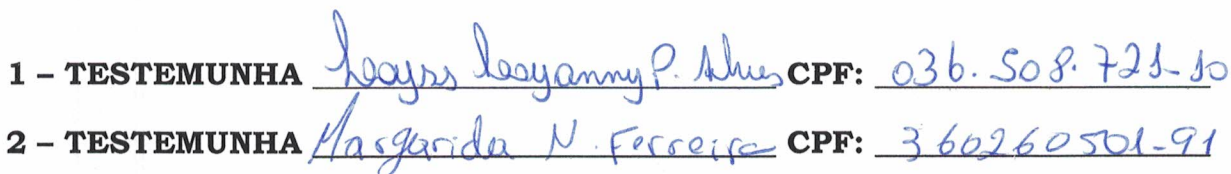 1 – TESTEMUNHA Layanny P. Alves CPF: 036.508.721-10
2 – TESTEMUNHA Margarida N. Ferreira CPF: 360260501-91